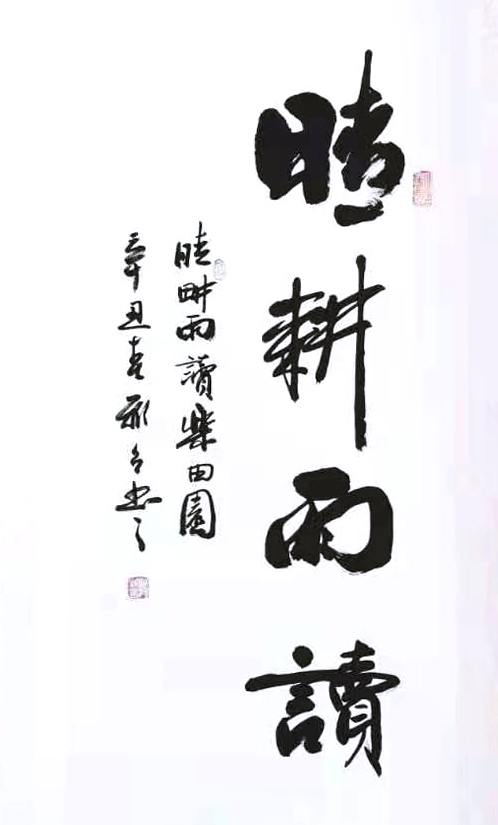 晴耕雨讀
晴耕雨讀樂田園
辛丑春
書